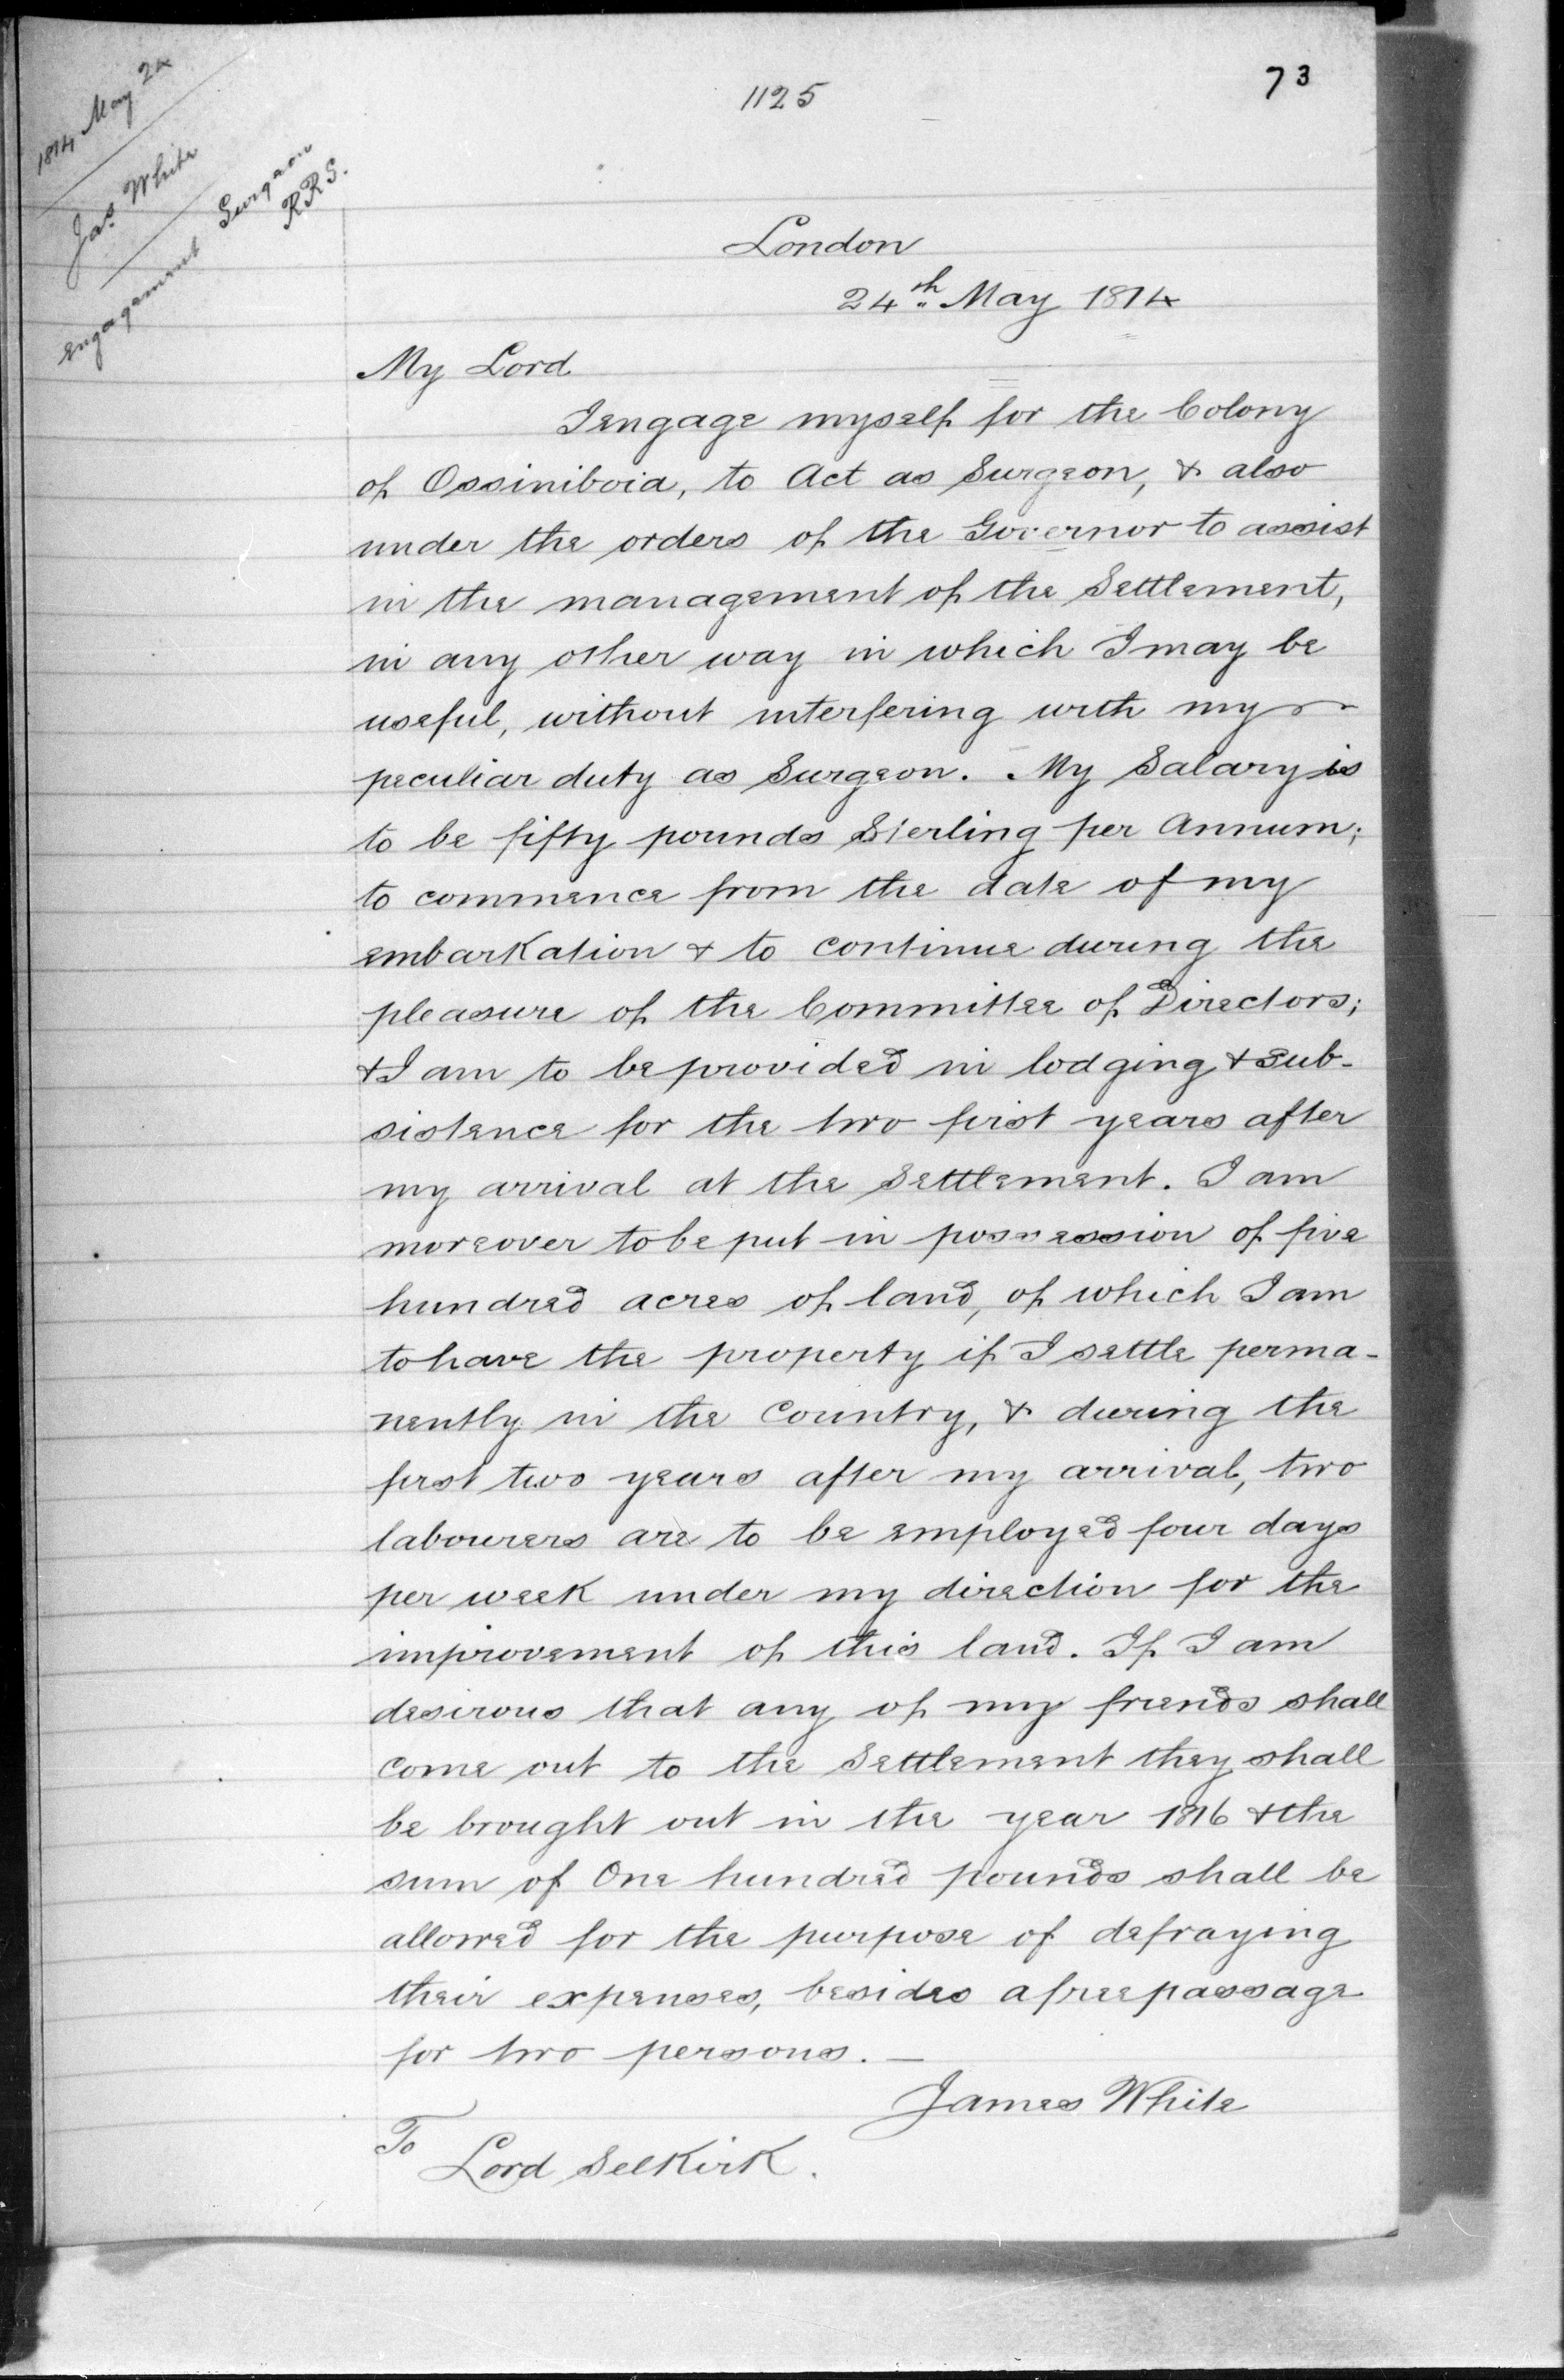 1125
73
1814 May 24
Jas. White
engagement Surgeon
RRS.
London
24th May 1814
My Lord
I engage myself for the Colony
of Ossiniboia, to Act as Surgeon, & also
under the orders of the Governor to assist
in the management of the Settlement,
in any other way in which I may be
useful, without interfering with my
peculiar duty as Surgeon. My Salary is
to be fifty pounds Sterling per Annum;
to commence from the date of my
embarkation & to continue during the
pleasure of the Committee of Directors;
& I am to be provided in lodging & sub-
sistence for the two first years after
my arrival at the Settlement. I am
moreover to be put in possession of five
hundred acres of land, of which I am
to have the property if I settle perma-
nently in the Country, & during the
first two years after my arrival, two
labourers are to be employed four days
per week under my direction for the
improvement of this land. If I am
desirous that any of my friends shall
come out to the Settlement they shall
be brought out in the year 1816 & the
sum of One hundred pounds shall be
allowed for the purpose of defraying
their expenses, besides a free passage
for two persons. —
James White
To
Lord Selkirk.